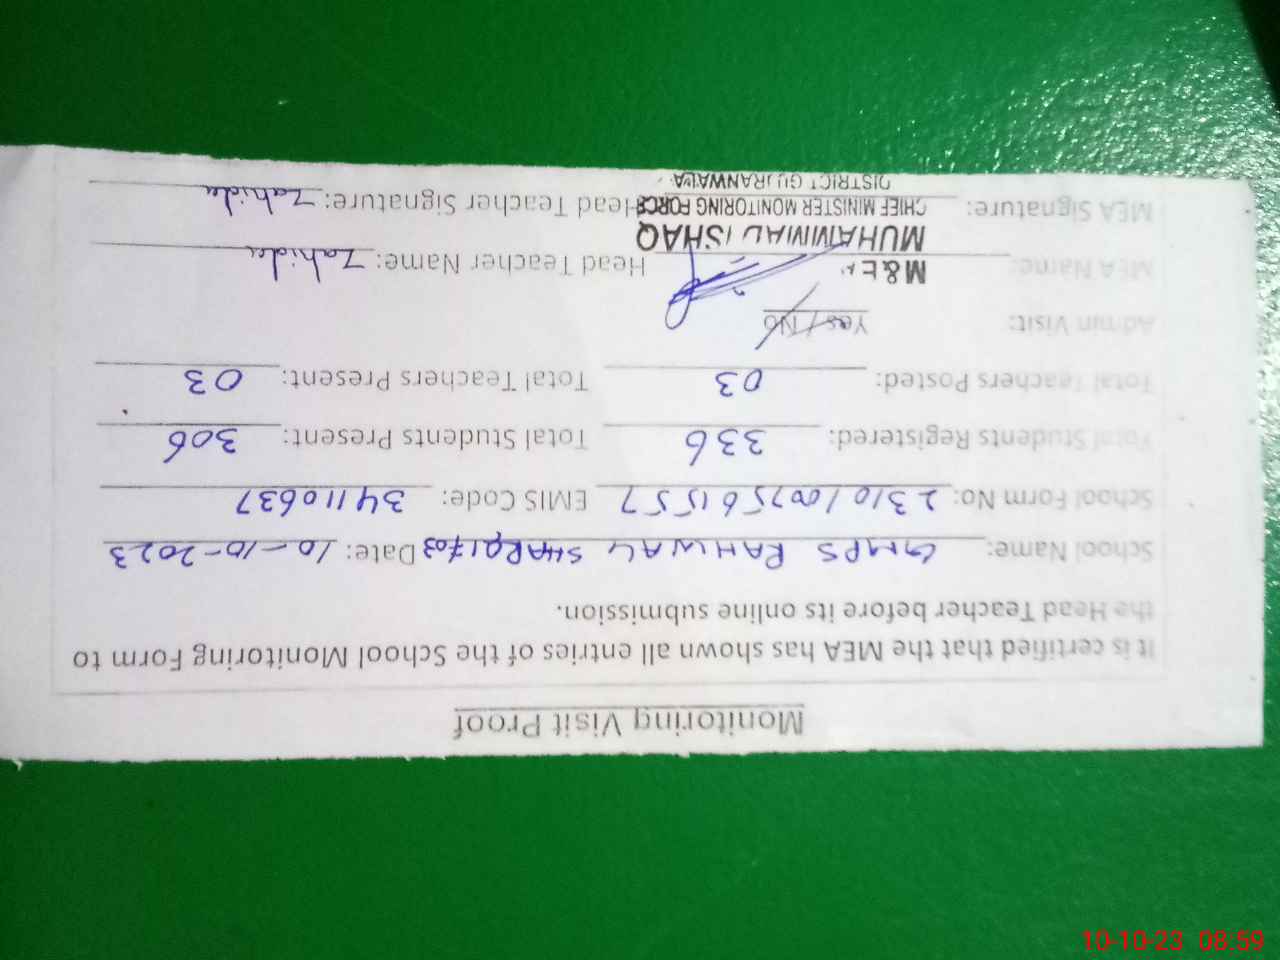 Monitoring Visit Proof
It is certified that the MEA has shown all entries of the School Monitoring Form to
the Head Teacher before its online submission.
School Name: GMPS RAHWALI SHARQI 703 Date: 10-10-2023
School Form No: 2310100756 1557 EMIS Code: 34110637
Total Students Registered: 336 Total Students Present: 306
Total Teachers Posted: 03 Total Teachers Present: 03
Admin Visit: Yes / No
MEA Name: M&EA Head Teacher Name: Zahida
MUHAMMAD ISHAQ
CHIEF MINISTER MONITORING FORCE
MEA Signature: Head Teacher Signature: Zahida
DISTRICT GUJRANWALA
10-10-23 08:59